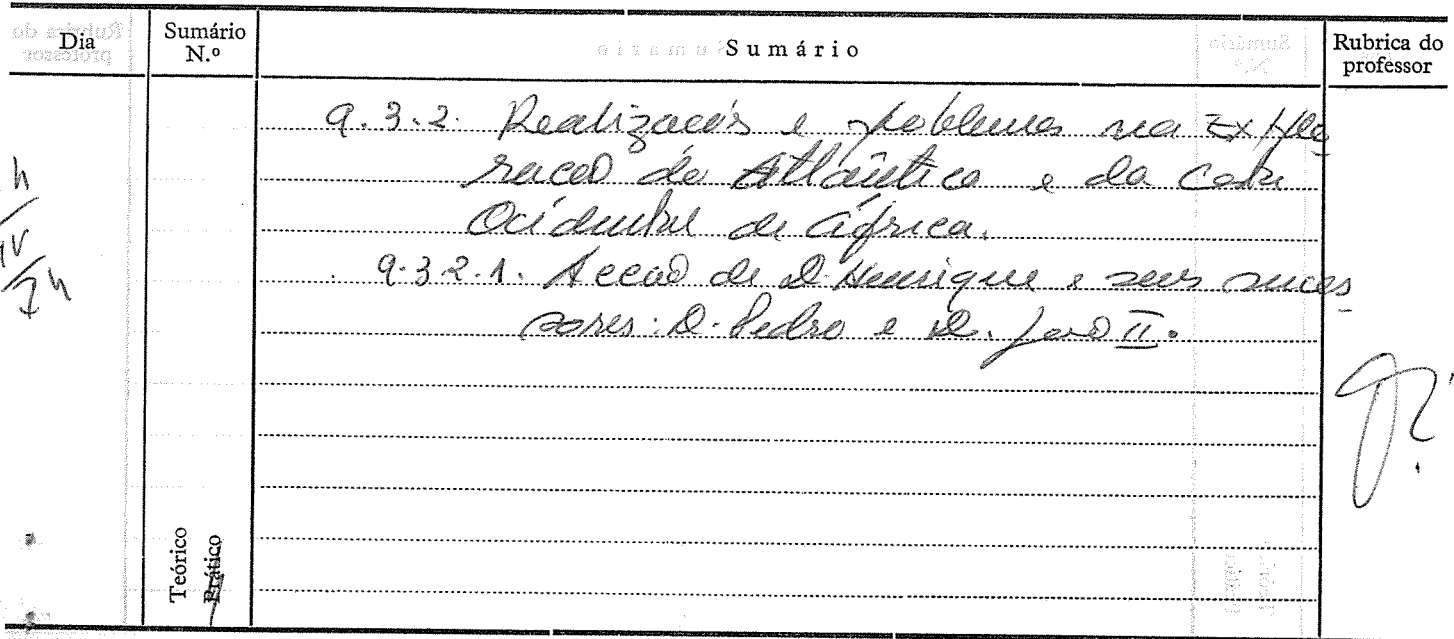 Dia
Sumário N.º
Sumário
Rubrica do professor
9.3.2. Realizações e problemas na Explo
ração do Atlântico e da Costa
Ocidental de África.
9.3.2.1. Acção de D. Henrique e seus suces
sores: D. Pedro e D. João II.
Teórico
Prático